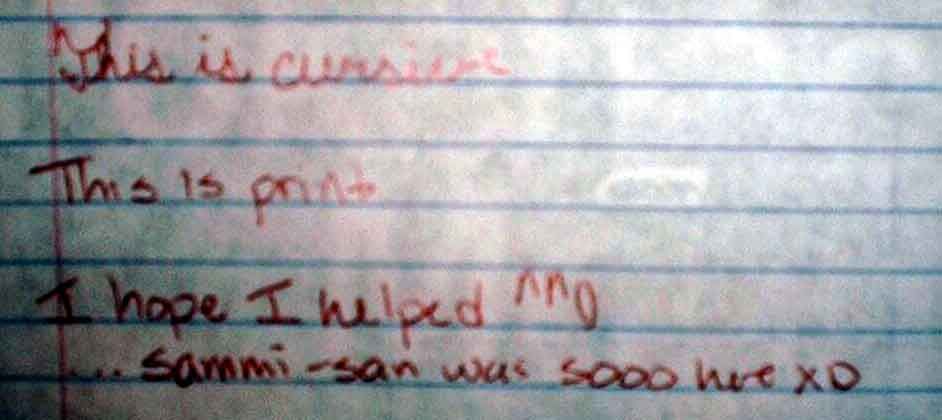 This is cursive
This is print
I hope I helped ^^0
... sammi-san was sooo here xD